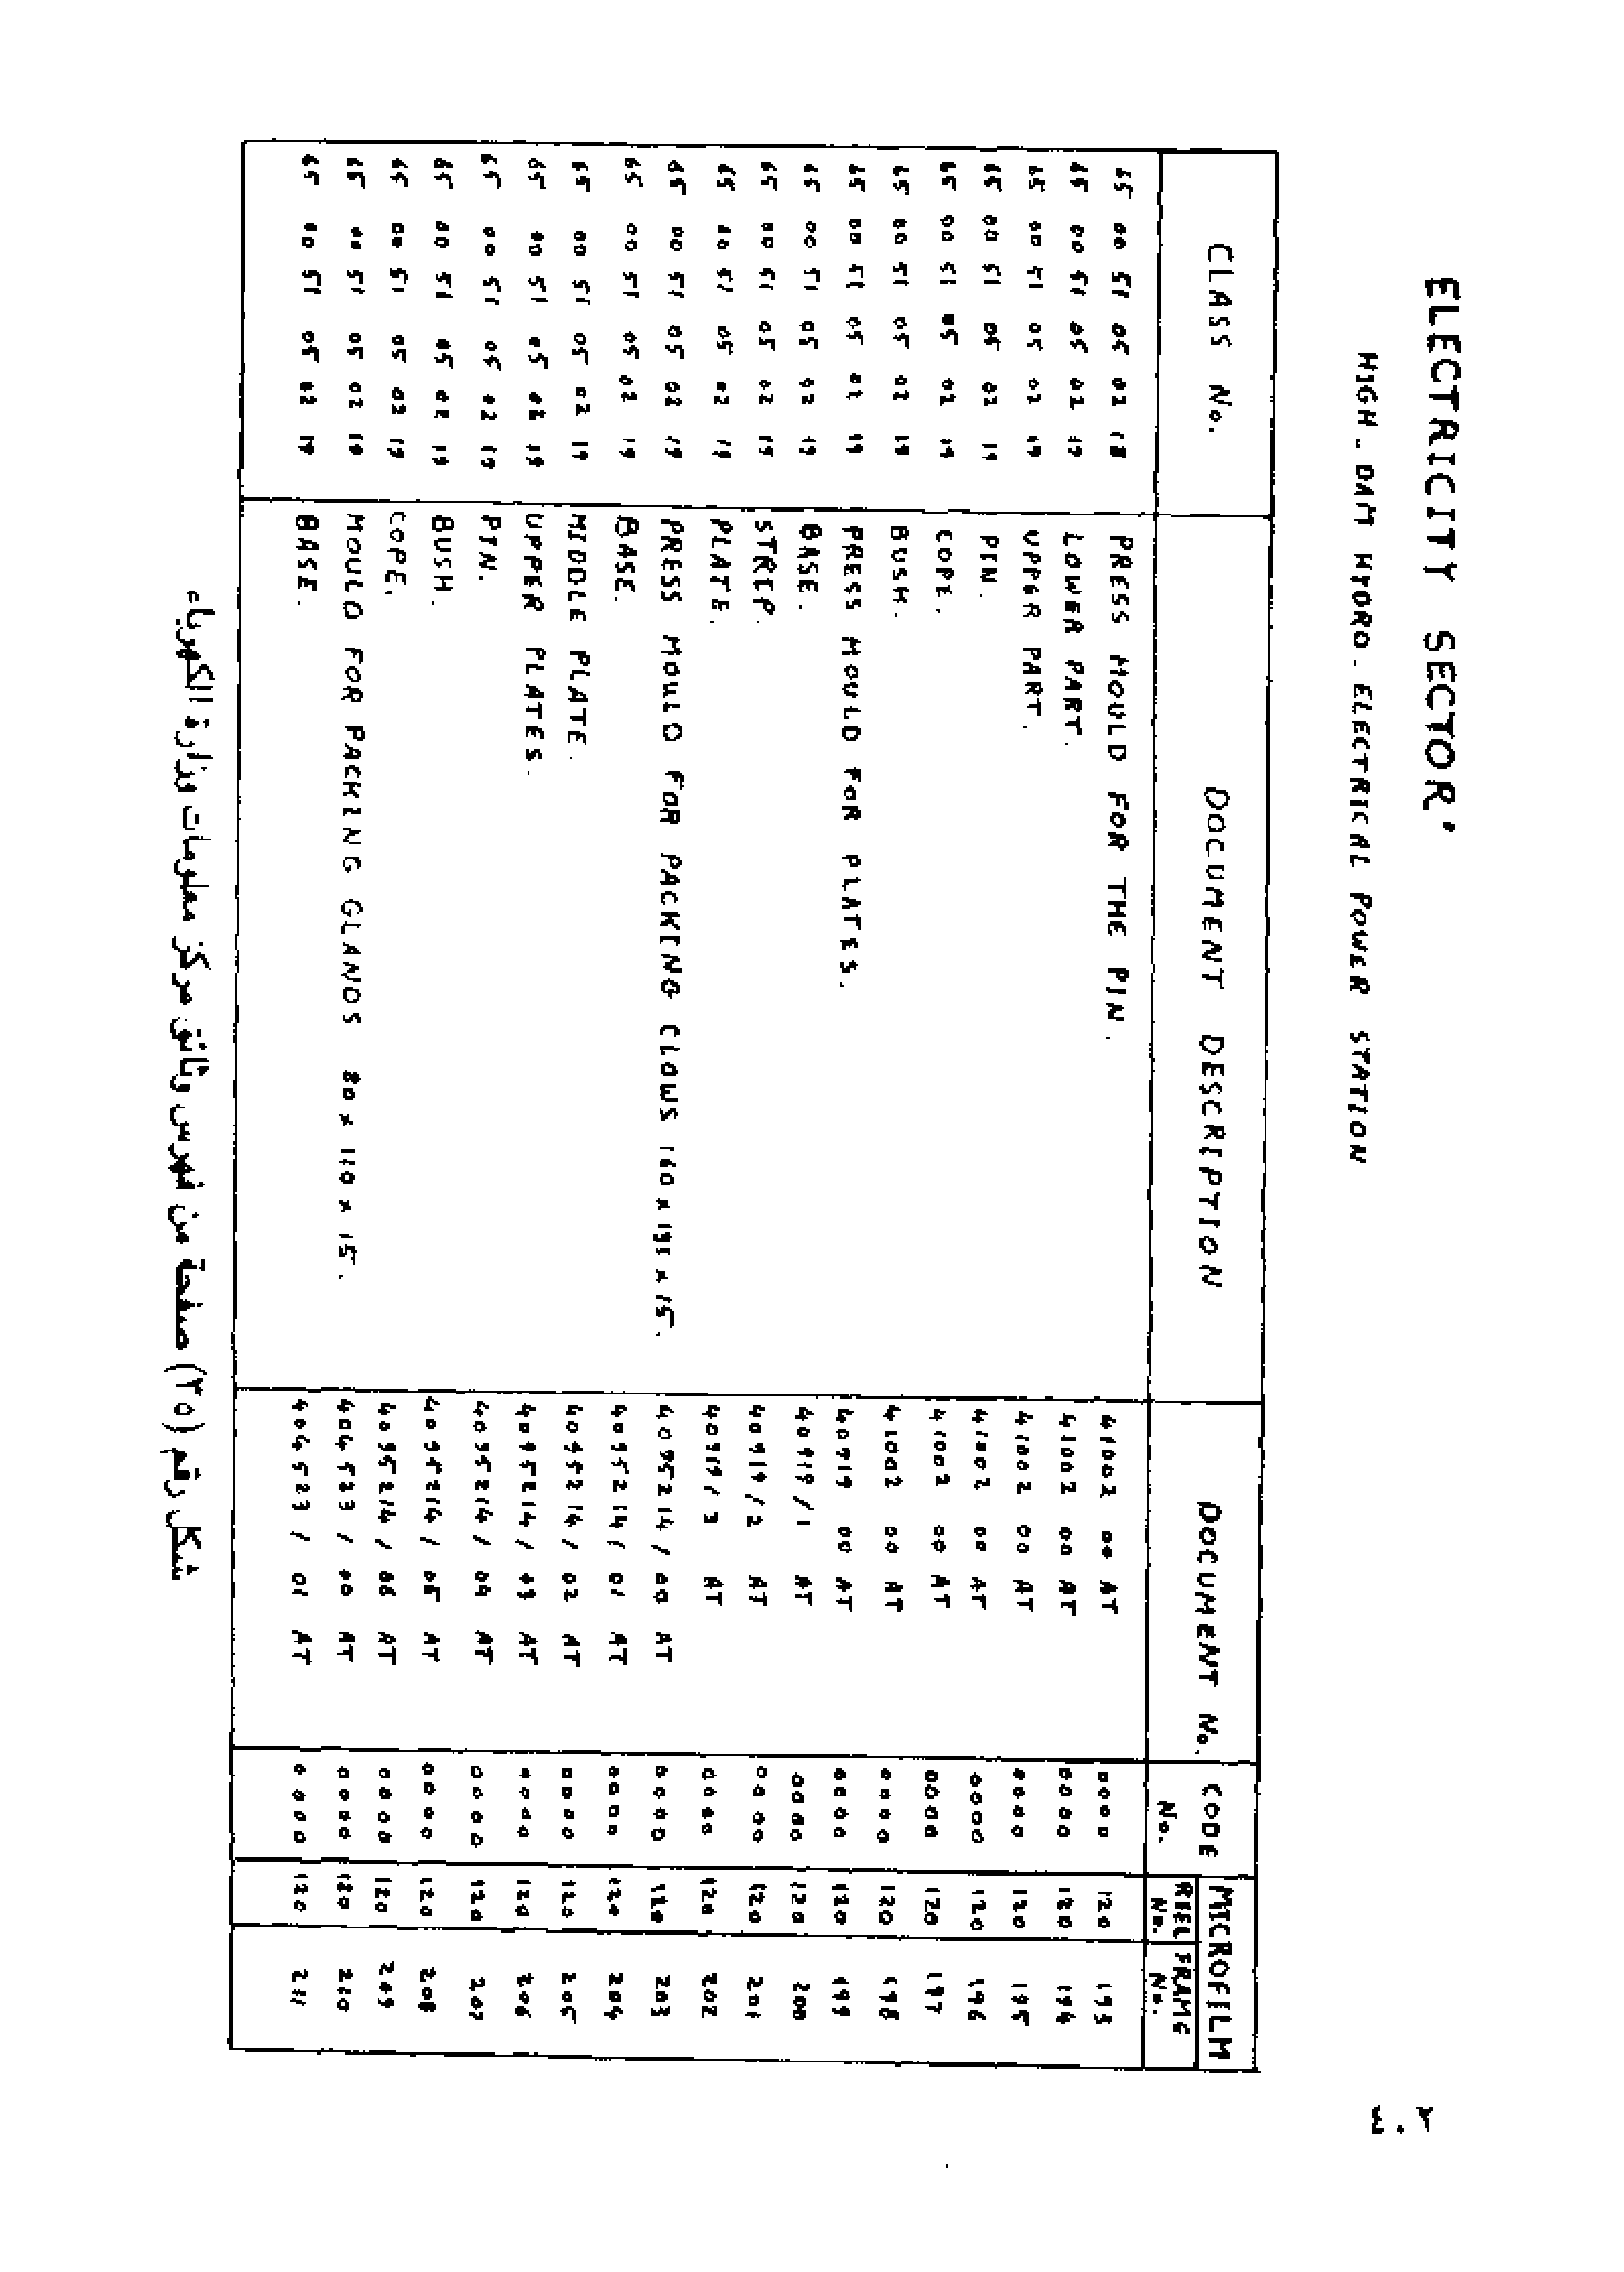 ELECTRICITY SECTOR'
HIGH-DAM HYDRO-ELECTRICAL POWER STATION
CLASS No. DOCUMENT DESCRIPTION DOCUMENT No. CODE No. MICROFILM REEL No. FRAME No.
65 00 51 05 02 18 PRESS MOULD FOR THE PIN. 41002 00 AT 0000 120 193
65 00 51 05 02 19 LOWER PART. 41002 00 AT 0000 120 194
65 00 51 05 02 19 UPPER PART. 41002 00 AT 0000 120 195
65 00 51 05 02 19 PIN. 41002 00 AT 0000 120 196
65 00 51 05 02 19 COPE. 41002 00 AT 0000 120 197
65 00 51 05 02 19 BUSH. 41002 00 AT 0000 120 198
65 00 51 05 02 19 PRESS MOULD FOR PLATES. 40919 00 AT 0000 120 199
65 00 51 05 02 19 BASE. 40919/1 AT 0000 120 200
65 00 51 05 02 19 STRIP. 40919/2 AT 0000 120 201
65 00 51 05 02 19 PLATE. 40919/3 AT 0000 120 202
65 00 51 05 02 19 PRESS MOULD FOR PACKING CLOWS 160 x 191 x 15. 4095214/00 AT 0000 120 203
65 00 51 05 02 19 BASE. 4095214/01 AT 0000 120 204
65 00 51 05 02 19 MIDDLE PLATE. 4095214/02 AT 0000 120 205
65 00 51 05 02 19 UPPER PLATES. 4095214/03 AT 0000 120 206
65 00 51 05 02 19 PIN. 4095214/04 AT 0000 120 207
65 00 51 05 02 19 BUSH. 4095214/05 AT 0000 120 208
65 00 51 05 02 19 COPE. 4095214/06 AT 0000 120 209
65 00 51 05 02 19 MOULD FOR PACKING GLANDS 80 x 110 x 15. 404523/00 AT 0000 120 210
65 00 51 05 02 19 BASE. 404523/01 AT 0000 120 211
شكل رقم (٣٥) صفحة من فهرس وثائق مركز معلومات وزارة الكهرباء
٤٠٢